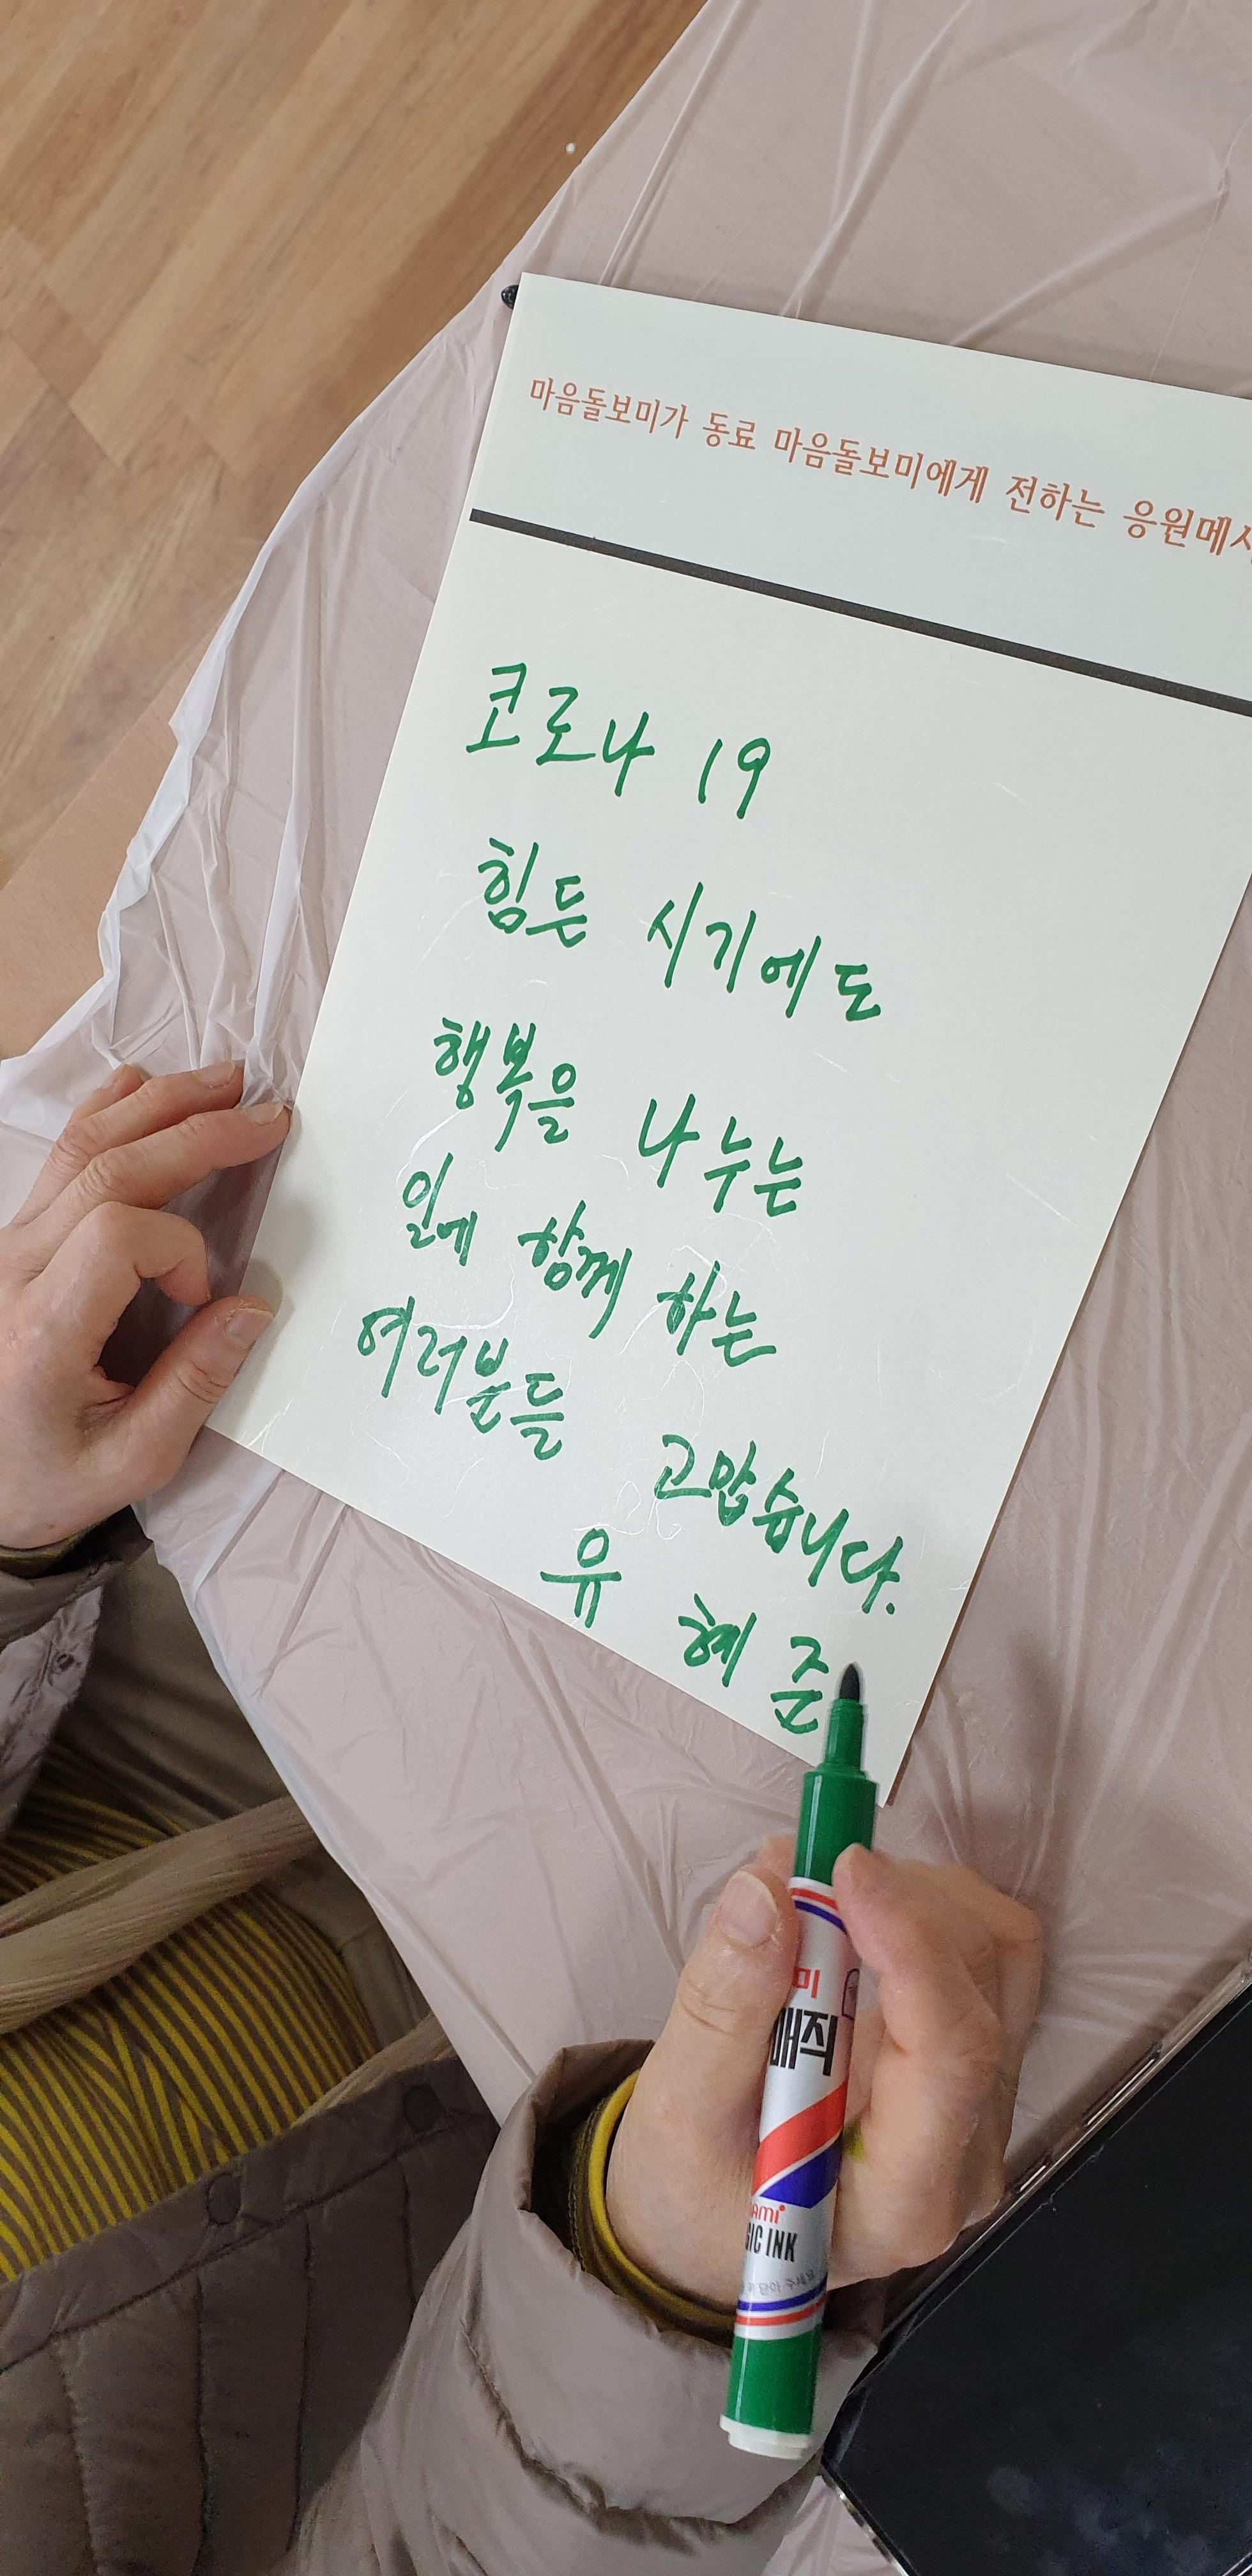 마음돌보미가 동료 마음돌보미에게 전하는 응원메시
코로나 19
힘든 시기에도
행복을 나누는
일에 함께 하는
여러분들 고맙습니다.
유 혜 준
미
매직
AMI
GIC INK